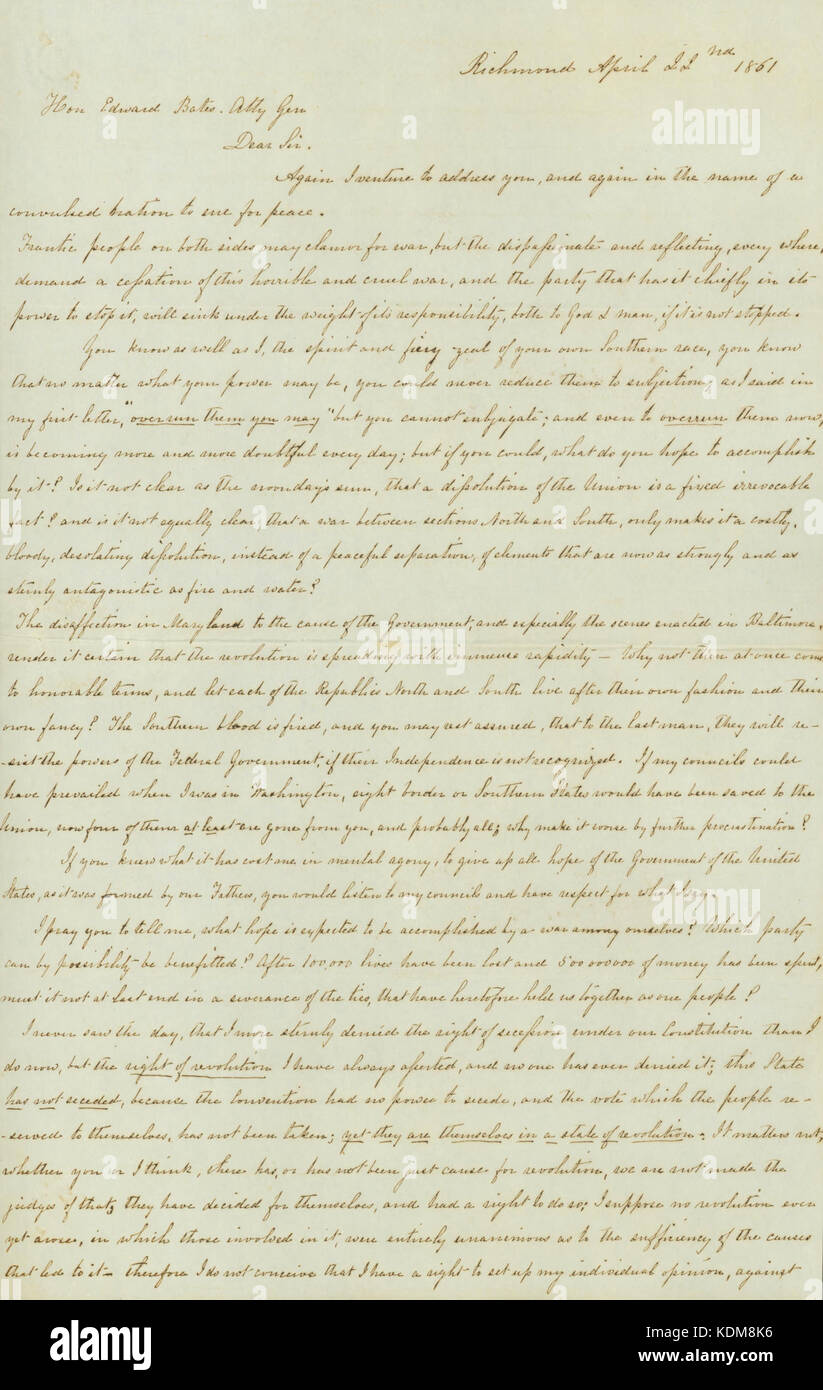 Richmond April 22nd 1861
Hon Edward Bates. Atty Gen
Dear Sir.
Again I venture to address you, and again in the name of a
convulsed nation to sue for peace.
Frantic people on both sides may clamor for war, but the dispassionate and reflecting, every where,
demand a cessation of this horrible and cruel war, and the party that has it chiefly in its
power to stop it, will sink under the weight of its responsibility, both to God & man, if it is not stopped.
You know as well as I, the spirit and fiery zeal of your own Southern race, you know
that no matter what your power may be, you could never reduce them to subjection, as I said in
my first letter, "overrun them you may" but you cannot subjugate; and even to overrun them now,
is becoming more and more doubtful every day; but if you could, what do you hope to accomplish
by it? Is it not clear as the noonday's sun, that a dissolution of the Union is a fixed irrevocable
fact? and is it not equally clear, that a war between sections North and South, only makes it a costly,
bloody, desolating dissolution, instead of a peaceful separation, of elements that are now as strongly and as
sternly antagonistic as fire and water?
The disaffection in Maryland to the cause of the Government, and especially the scenes enacted in Baltimore,
render it certain that the revolution is spreading with immense rapidity — Why not then at once come
to honorable terms, and let each of the Republics North and South live after their own fashion and their
own fancy? The Southern blood is fired, and you may rest assured, that to the last man, they will re-
-sist the powers of the Federal Government, if their Independence is not recognized. If my councils could
have prevailed when I was in Washington, eight border or Southern States would have been saved to the
Union, now four of them at least are gone from you, and probably all; why make it worse by further procrastination?
If you knew what it has cost me in mental agony, to give up all hope of the Government of the United
States, as it was formed by our Fathers, you would listen to my councils and have respect for what I say.
I pray you to tell me, what hope is expected to be accomplished by a war among ourselves? Which party
can by possibility be benefitted? After 100,000 lives have been lost and 500 000 000 of money has been spent,
must it not at last end in a severance of the ties, that have heretofore held us together as one people?
I never saw the day, that I more sternly denied the right of secession under our Constitution than I
do now, but the right of revolution I have always asserted, and no one has ever denied it; this State
has not seceded, because the Convention had no power to secede, and the vote which the people re-
-served to themselves, has not been taken; yet they are themselves in a state of revolution. It matters not,
whether you or I think, there has, or has not been just cause for revolution, we are not made the
judges of that; they have decided for themselves, and had a right to do so; I suppose no revolution ever
yet arose, in which those involved in it, were entirely unanimous as to the sufficiency of the causes
that led to it — therefore I do not conceive that I have a right to set up my individual opinion, against
alamy
a
alamy stock photo
KDM8K6
www.alamy.com